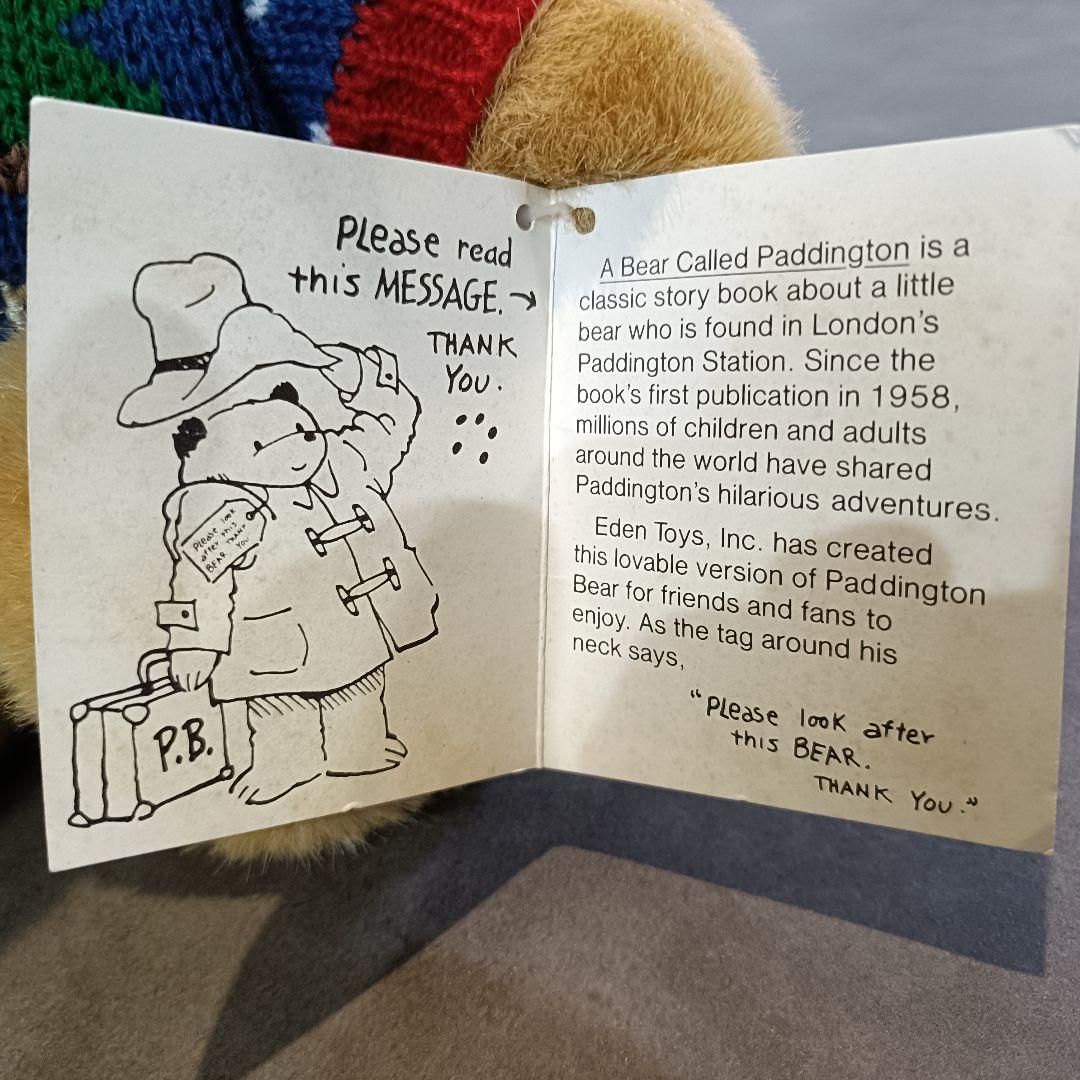 PLease read
this MESSAGE. →
THANK
YOU.
Please look
after this
BEAR THANK
YOU
P.B.
A Bear Called Paddington is a
classic story book about a little
bear who is found in London's
Paddington Station. Since the
book's first publication in 1958,
millions of children and adults
around the world have shared
Paddington's hilarious adventures.
Eden Toys, Inc. has created
this lovable version of Paddington
Bear for friends and fans to
enjoy. As the tag around his
neck says,
"PLease look after
this BEAR.
THANK YOU."